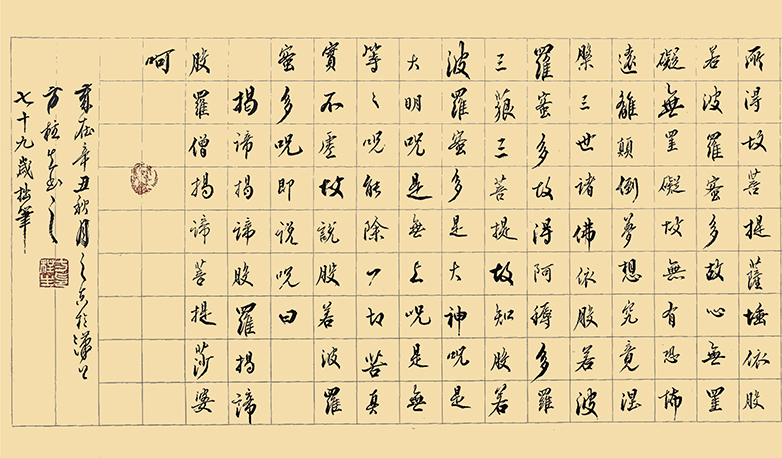 所得故菩提薩埵依般
若波羅蜜多故心無罣
礙無罣礙故無有恐怖
遠離顛倒夢想究竟涅
槃三世諸佛依般若波
羅蜜多故得阿耨多羅
三藐三菩提故知般若
波羅蜜多是大神呪是
大明呪是無上呪是無
等々呪能除一切苦真
實不虛故說般若波羅
蜜多呪即说呪曰
揭諦揭諦般羅揭諦
般羅僧揭諦菩提莎婆
呵
歲在辛丑秋月之吉於漢上
七十九歲拙筆